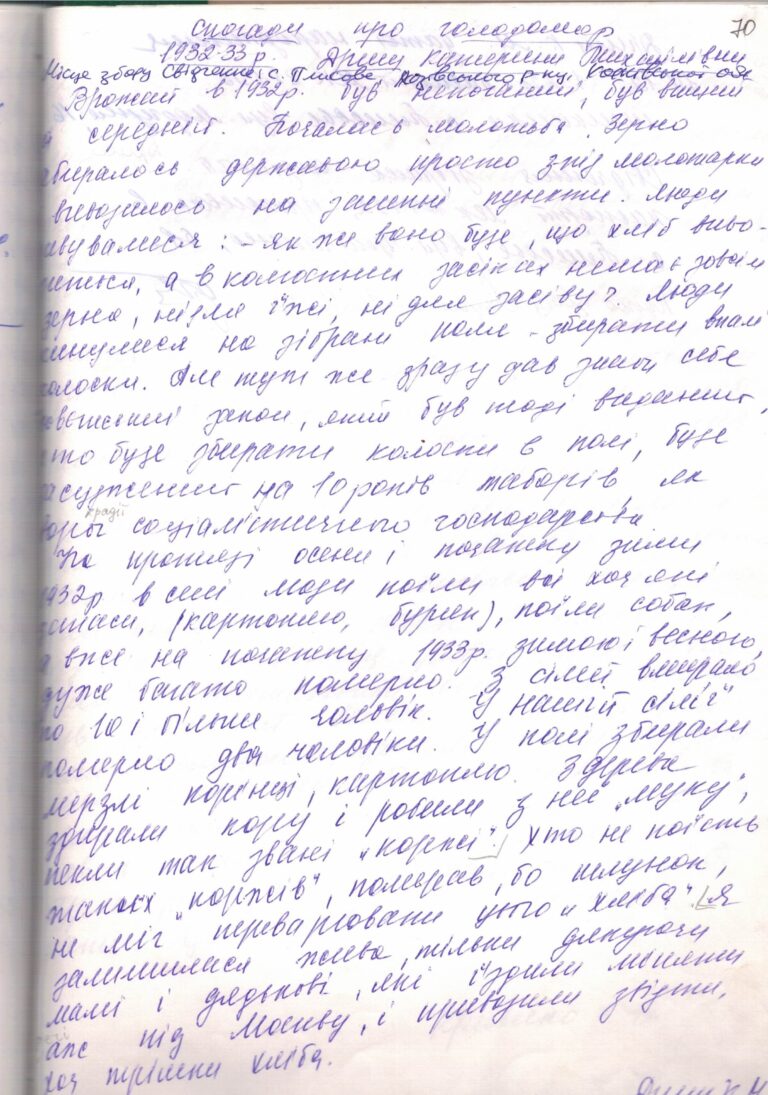 70
Спогади про голодомор
1932-33 р. Катерини Михайлівни
Місце збору свідчення: с. обл
Врожай в 1932 р. був непоганий, був вищий
середній. Почалась молотьба. Зерно
абиралось державою просто з під молотарки
вивозилось на заготні пункти. Люди
вувалися: - як же воно буде, що хліб виво-
иться, а в колгоспних засіках немає зовсім
зерна, ні для їжі, ні для засіву? Люди
кинулися на зібрані поля - збирати впалі
колоски. Але тут же зразу дав знати себе
закон, який був тоді виданий,
то буде збирати колоски в полі, буде
асуджений на 10 років таборів, як
крадії
ворог соціалістичного господарства
На протязі осени і початку зими
1932р в селі люди поїли всі хоч які
запаси, (картоплю, буряк), поїли собак,
а вже на початку 1933р. зимою і весною,
дуже багато померло. З сімей вмирало
по 10 і більше чоловік. У нашій сім'ї
померло два чоловіки. У полі збирали
мерзлі корінці, картоплю. З дерева
здирали кору і робили з неї „муку",
пекли так звані „коржі". Хто не поїсть
таких „коржів", помирав, бо шлунок,
не міг переварювати цього „хліба". Я
залишилася жива, тільки дякуючи
мамі і дядькові, які їздили міняти
аж під Москву, і привозили звідти,
хоч трішки хліба.